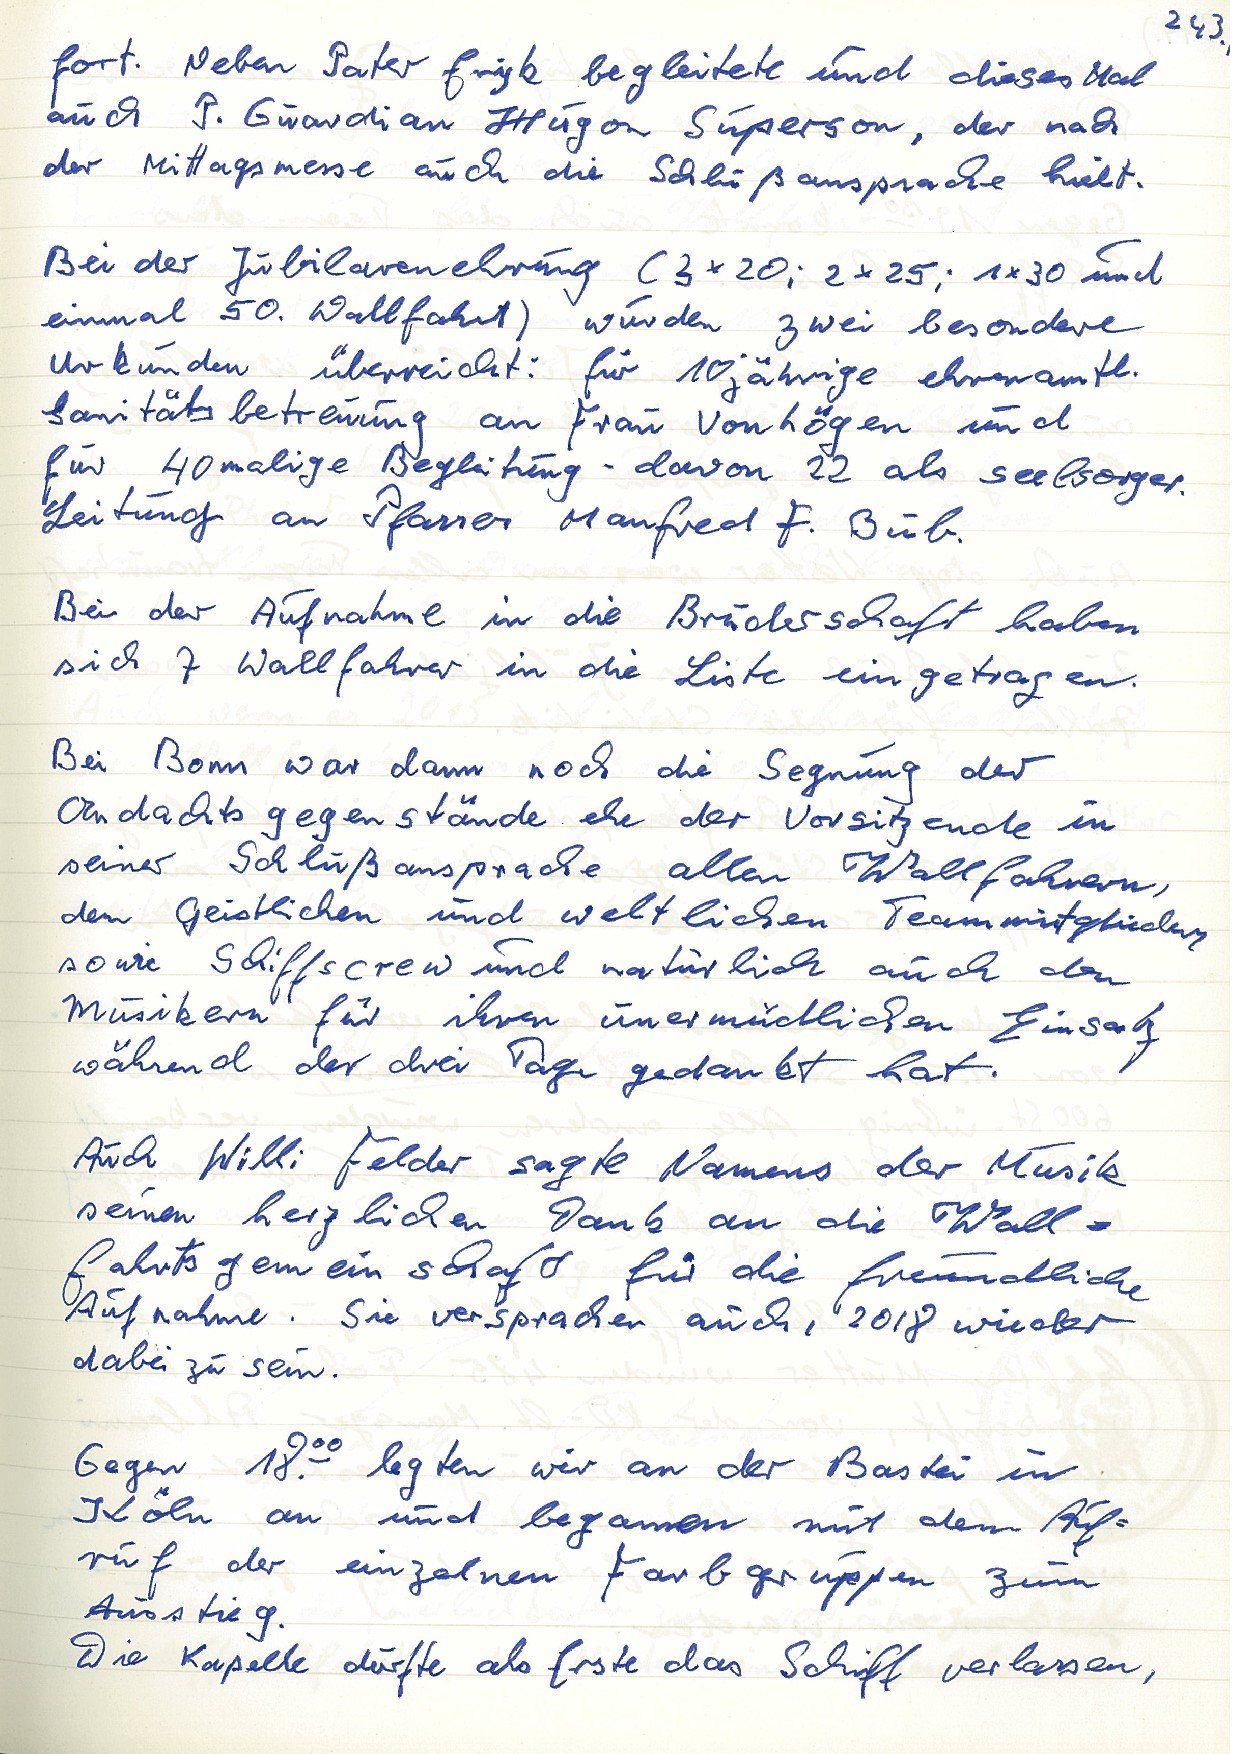 243.
fort. Neben Pater fryk begleitete und dieses Mal
auch P. Guardian Hugon Superson, der nach
der Mittagsmesse auch die Schlußansprache hielt.
Bei der Jubilarenehrung (3 x 20; 2 x 25; 1x30 und
einmal 50. Wallfahrt) wurden zwei besondere
Urkunden überreicht: für 10jährige ehrenamtl.
Sanitätsbetreuung an Frau Vonhögen und
für 40malige Begleitung - davon 22 als seelsorger.
Leitung an Pfarrer Manfred F. Büb.
Bei der Aufnahme in die Bruderschaft haben
sich 7 Wallfahrer in die Liste eingetragen.
Bei Bonn war dann noch die Segnung der
Andachtsgegenstände ehe der Vorsitzende in
seiner Schlußansprache allen Wallfahrern,
den Geistlichen und weltlichen Teammitgliedern
sowie Schiffscrew und natürlich auch den
Musikern für ihren unermüdlichen Einsatz
während der drei Tage gedankt hat.
Auch Willi Felder sagte Namens der Musik
seinen herzlichen Dank an die Wall-
fahrtsgemeinschaft für die freundliche
Aufnahme. Sie versprachen auch, 2018 wieder
dabei zu sein.
Gegen 18.00 legten wir an der Bastei in
Köln an und begannen mit dem Auf-
ruf der einzelnen Farbgruppen zum
Ausstieg.
Die Kapelle dürfte als Erste das Schiff verlassen,